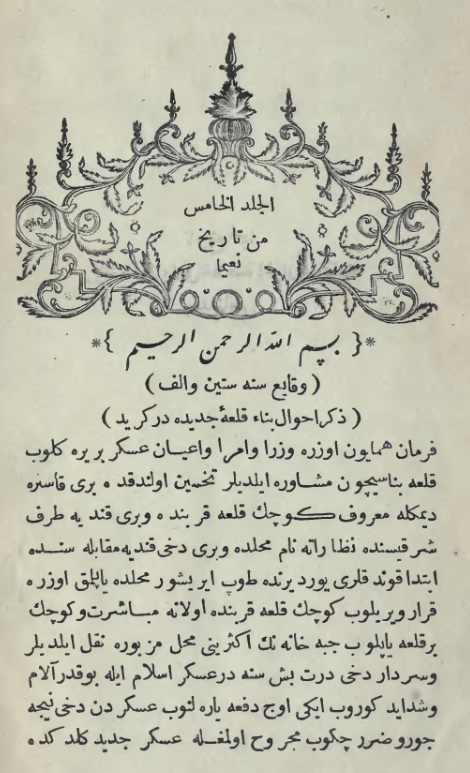 الجلد الخامس
من تاريخ
نعيما
*{ بسم الله الرحمن الرحيم }*
( وقايع سنه ستين والف )
( ذكر احوال بناء قلعهٔ جديده در كريد )
فرمان همايون اوزره وزرا وامرا واعيان عسكر بر يره كلوب
قلعه بناسيچون مشاوره ايلديلر تخمين اولندقده برى قاستره
ديمكله معروف كوچك قلعه قربنده وبرى قنديه طرف
شرقيسنده نظاراته نام محلده وبرى دخى قنديه مقابله سنده
ابتدا قوندقلرى يورد يرنده طوب ايريشور محلده ياپلمق اوزره
قرار ويريلوب كوچك قلعه قربنده اولانه مباشرت وكوچك
بر قلعه ياپلوب جبه خانه نك اكثرينى محل مزبوره نقل ايلديلر
وسردار دخى درت بش سنه در عسكر اسلام ايله بوقدر آلام
وشدايد كوروب ايكى اوچ دفعه ياره لنوب عسكردن دخى نيجه
جور وضرر چكوب مجروح اولمغله عسكر جديد كلدكده